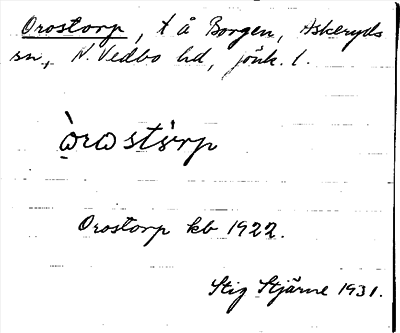 Orostorp, t å Borgen, Askeryds
sn, N. Vedbo hd, Jönk. l.
òrωstòrp
Orostorp kb 1922.
Stig Stjärne 1931.